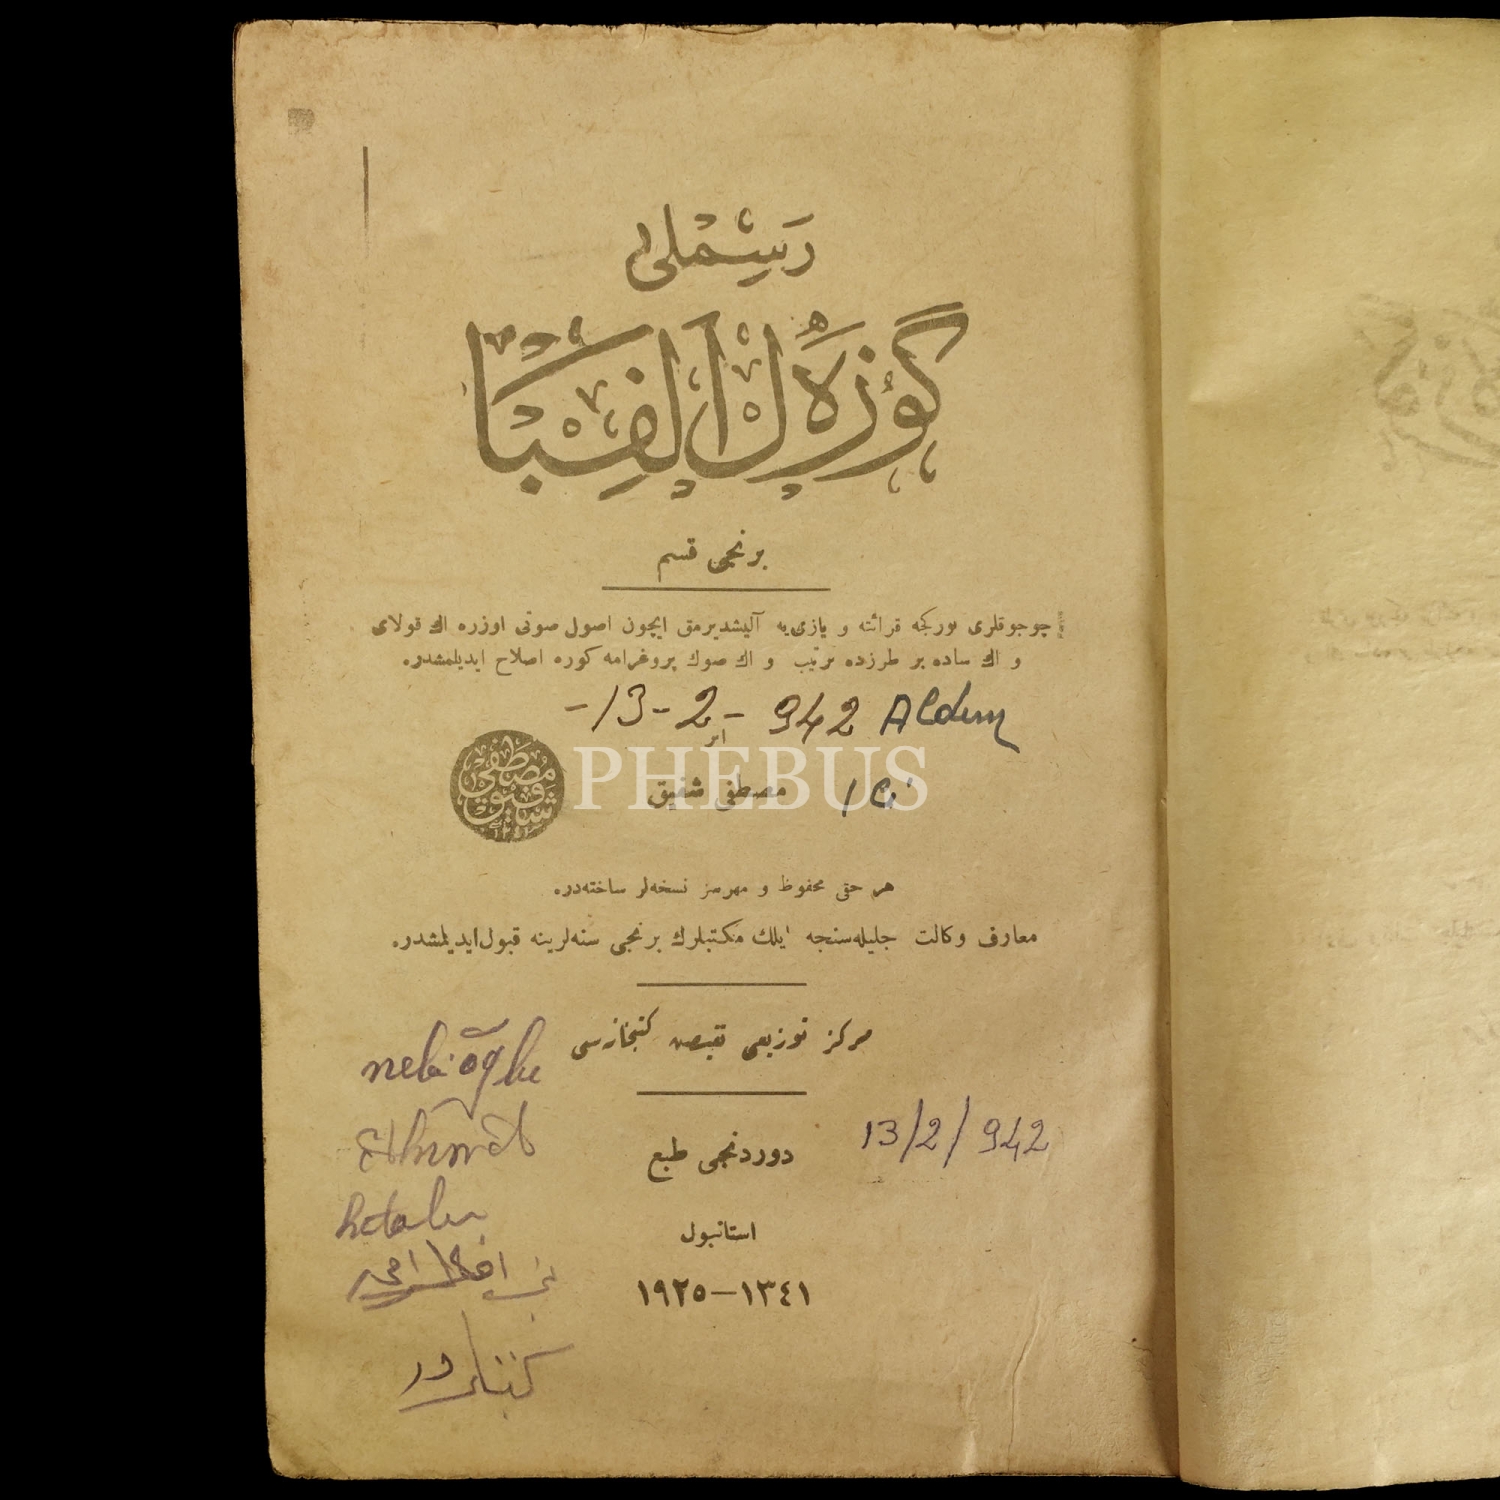 رسملی
گوزەل الفبا
برنجی قسم
چوجوقلری تورکجه قرائته و یازی‌یه آلیشدیرمق ایچون اصول صوتی اوزره اڭ قولای
و اڭ ساده بر طرزده ترتیب و اڭ صوڭ پروغرامه کوره اصلاح ایدیلمشدر.
-13-2-942 Aldım
اثر
PHEBUS
مصطفی شفیق
مصطفی شفیق
هر حقی محفوظ و مهرسز نسخه‌لر ساخته‌در.
معارف وکالت جلیله‌سنجه ایلك مکتبلرك برنجی سنه‌لرینه قبول ایدیلمشدر.
مرکز توزیعی کتبخانه‌سی
nebioğlu
دوردنجی طبع
13/2/942
استانبول
١٣٤١—١٩٢٥